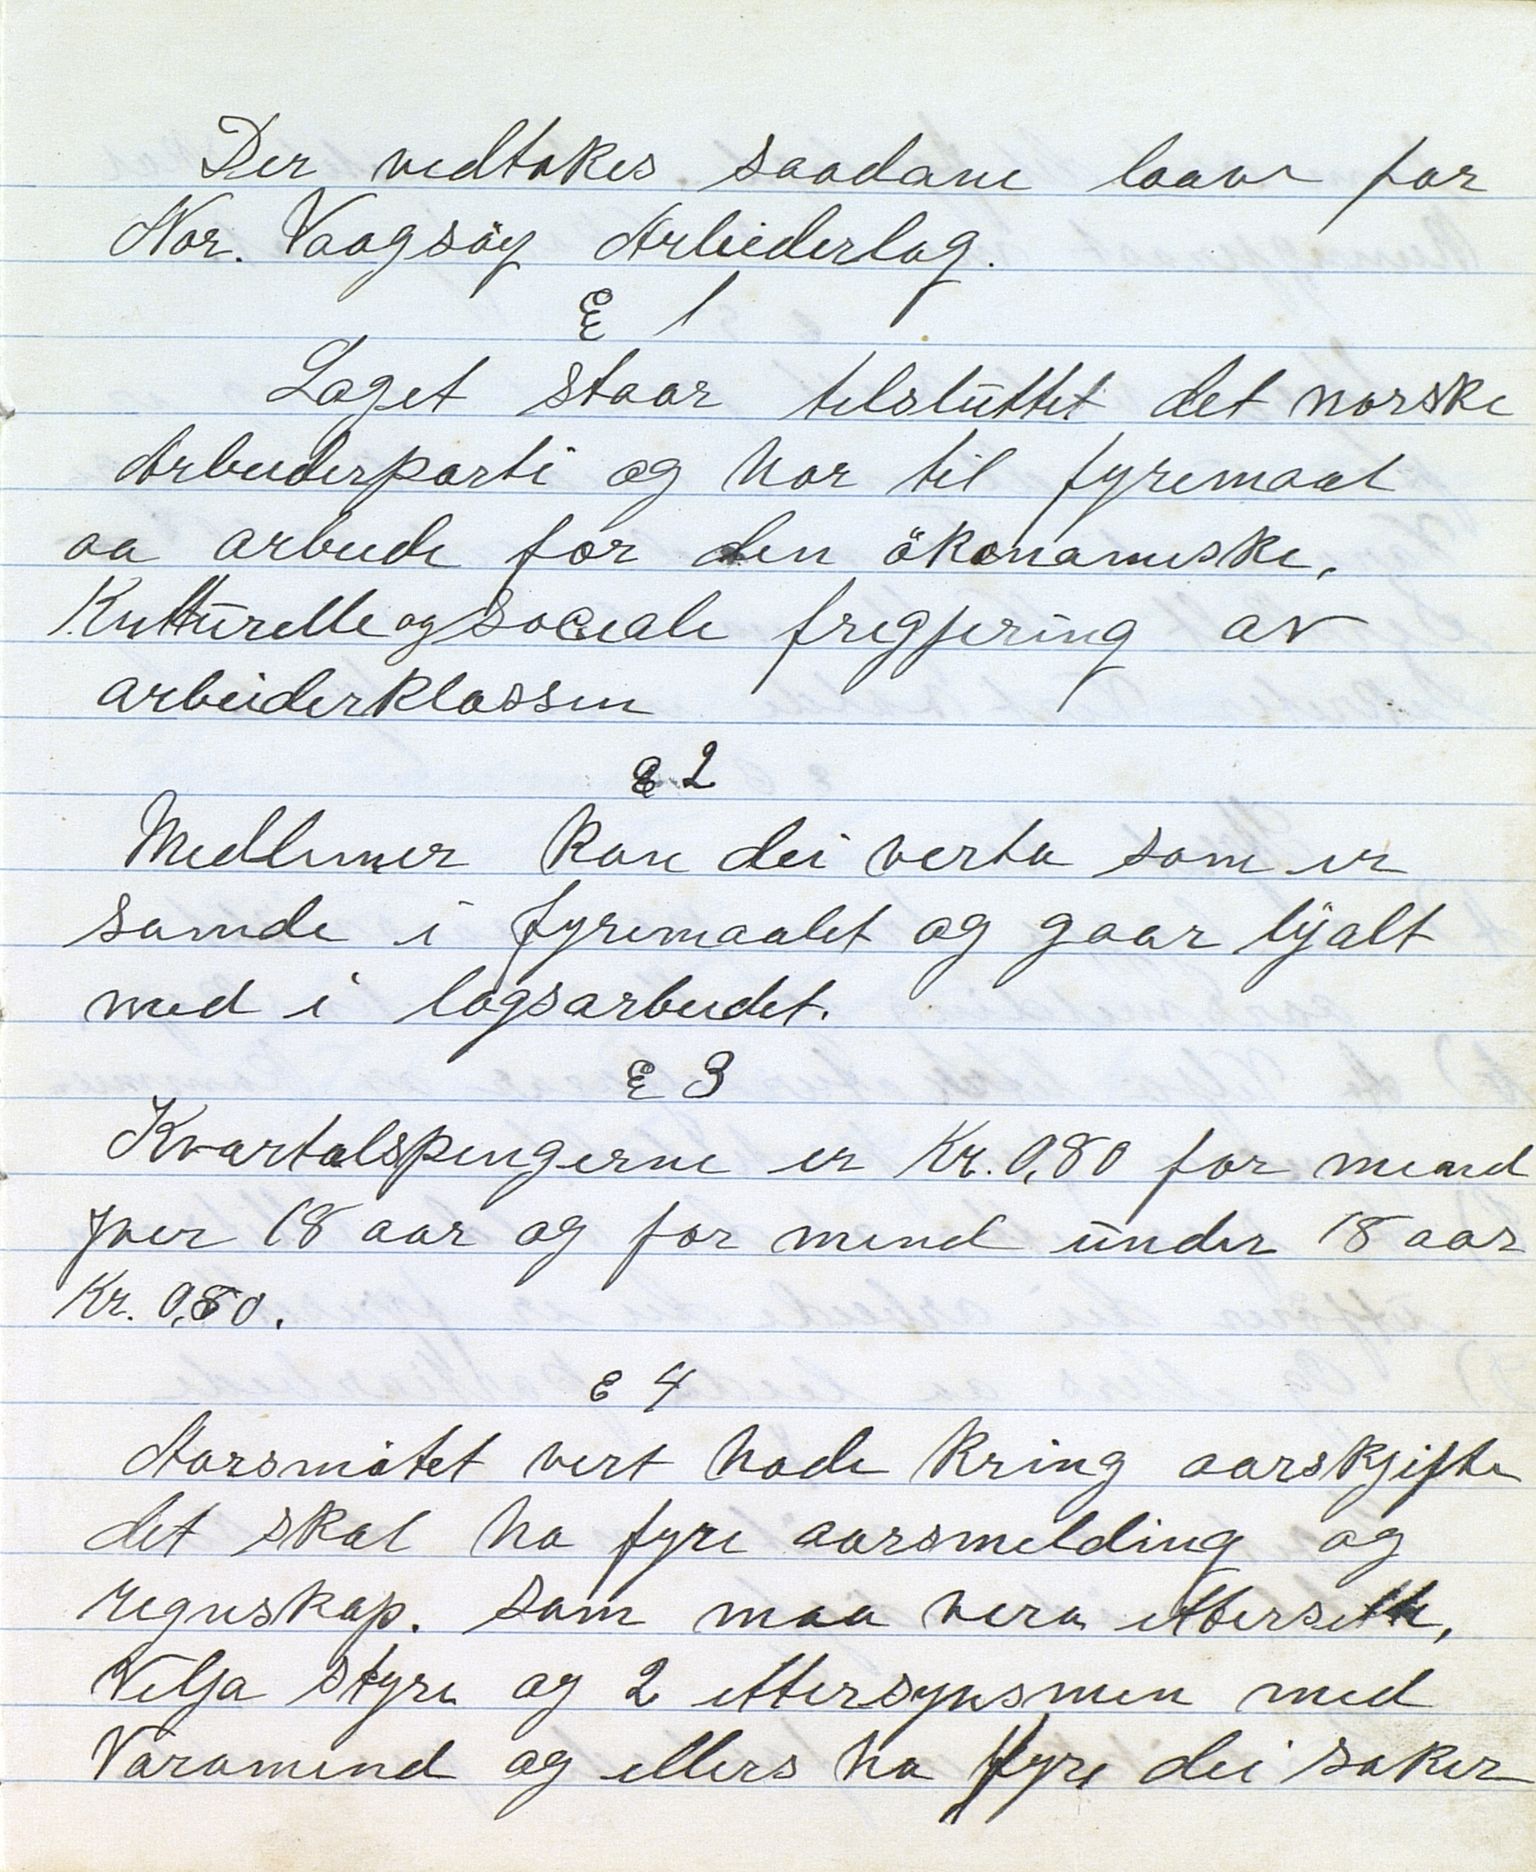 Der vedtakes saadane laavr for
Nor. Vaagsöy Arbeiderlag.
§ 1
Laget staar tilsluttet det norske
Arbeiderparti og har til fyremaal
aa arbeide for den ökonomiske,
Kulturelle og sociale frigjering av
arbeiderklassen
§ 2
Medlemer kan dei verta som er
samde i fyremaalet og gaar lyalt
med i lagsarbeidet.
§ 3
Kvartalspengerne er Kr. 0,80 for mend
yver 18 aar og for mend under 18 aar
Kr. 0,50.
§ 4
Aarsmötet vert hade kring aarskjifte
det skal ha fyre aarsmelding og
regnskap. som maa vera ettersette,
Velja styre og 2 ettersynsmen med
Varamend og ellers ha fyre dei saker